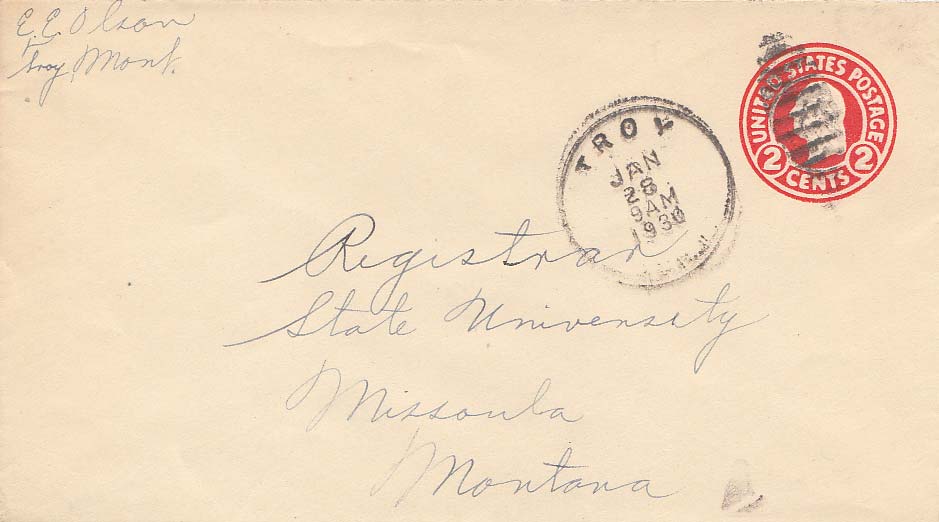 E. E. Olson
Troy, Mont.
UNITED STATES POSTAGE
2 CENTS 2
TROY
JAN
28
9 AM
1930
Registrar
State University
Missoula
Montana